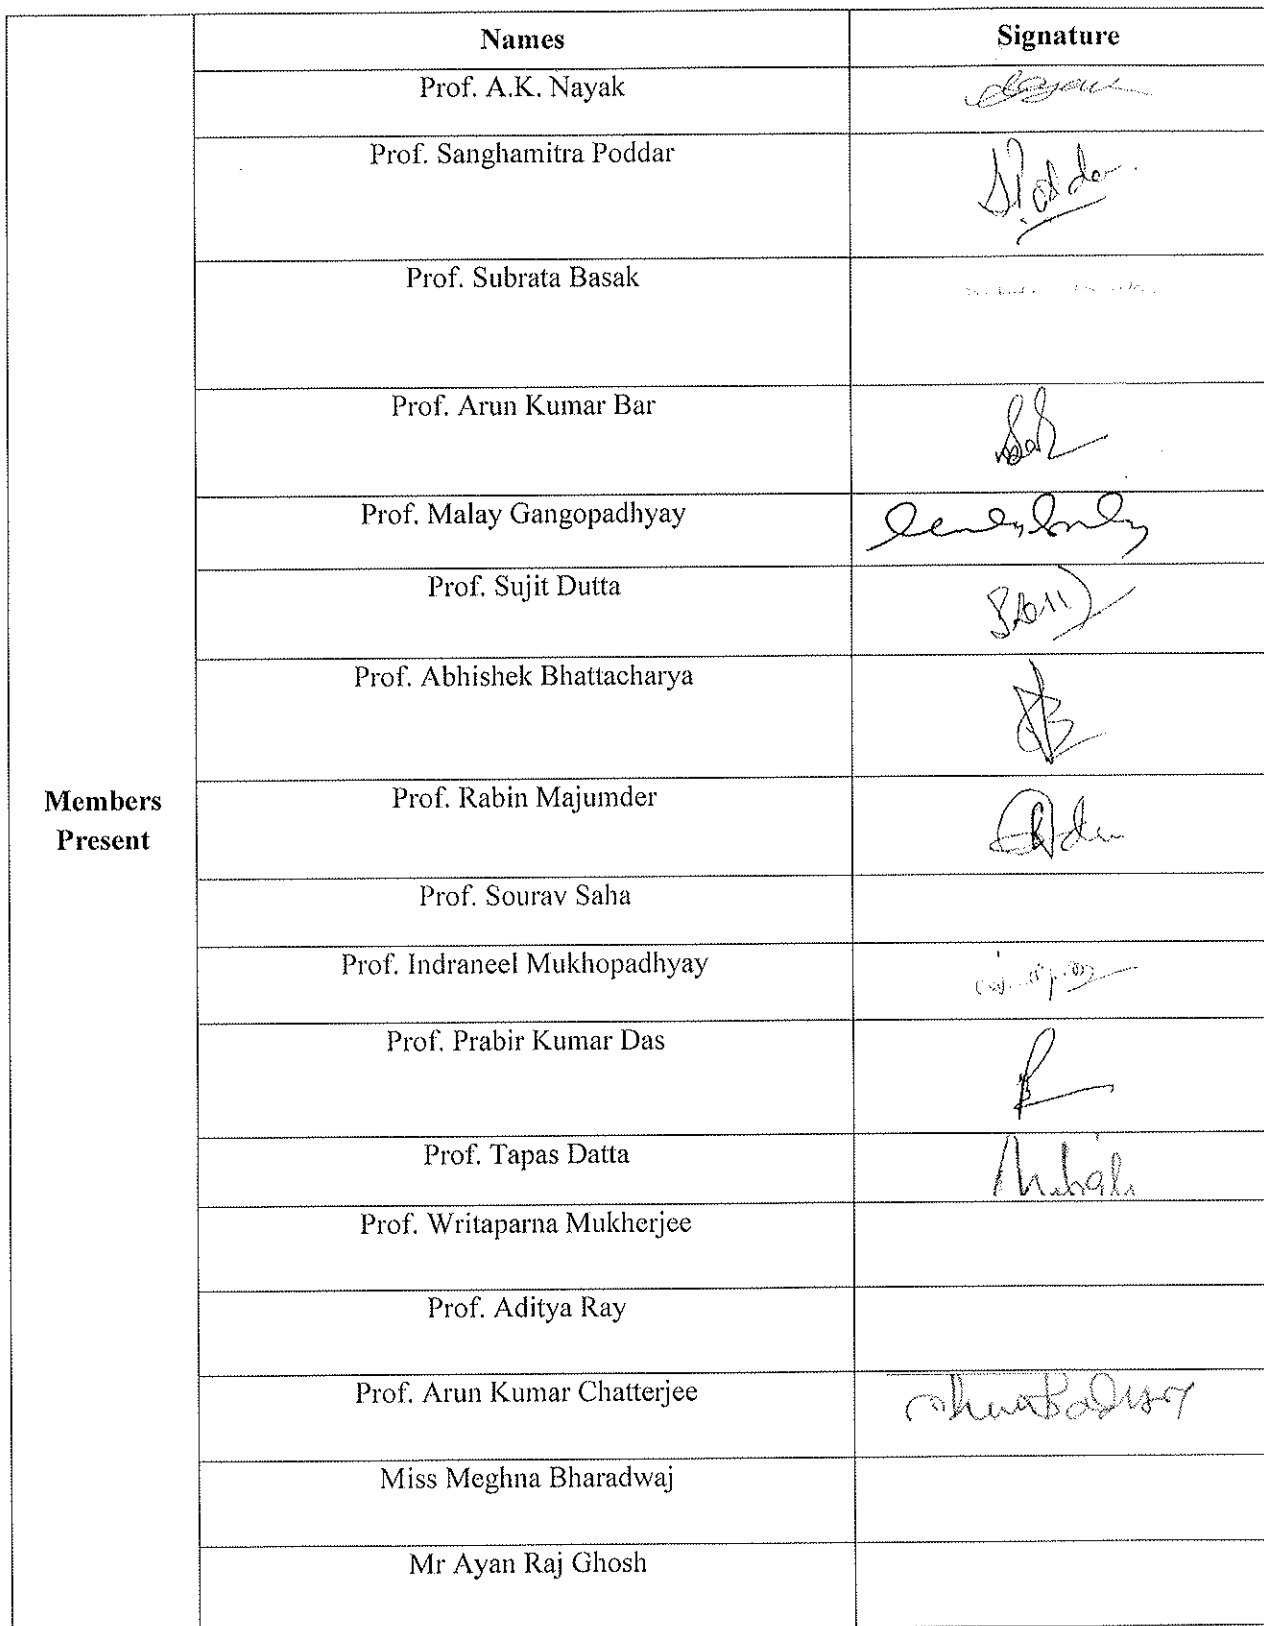 Names Signature
Prof. A.K. Nayak
Prof. Sanghamitra Poddar SPoddar
Prof. Subrata Basak
Prof. Arun Kumar Bar
Prof. Malay Gangopadhyay
Prof. Sujit Dutta
Prof. Abhishek Bhattacharya
Members
Present
Prof. Rabin Majumder
Prof. Sourav Saha
Prof. Indraneel Mukhopadhyay
Prof. Prabir Kumar Das
Prof. Tapas Datta
Prof. Writaparna Mukherjee
Prof. Aditya Ray
Prof. Arun Kumar Chatterjee
Miss Meghna Bharadwaj
Mr Ayan Raj Ghosh